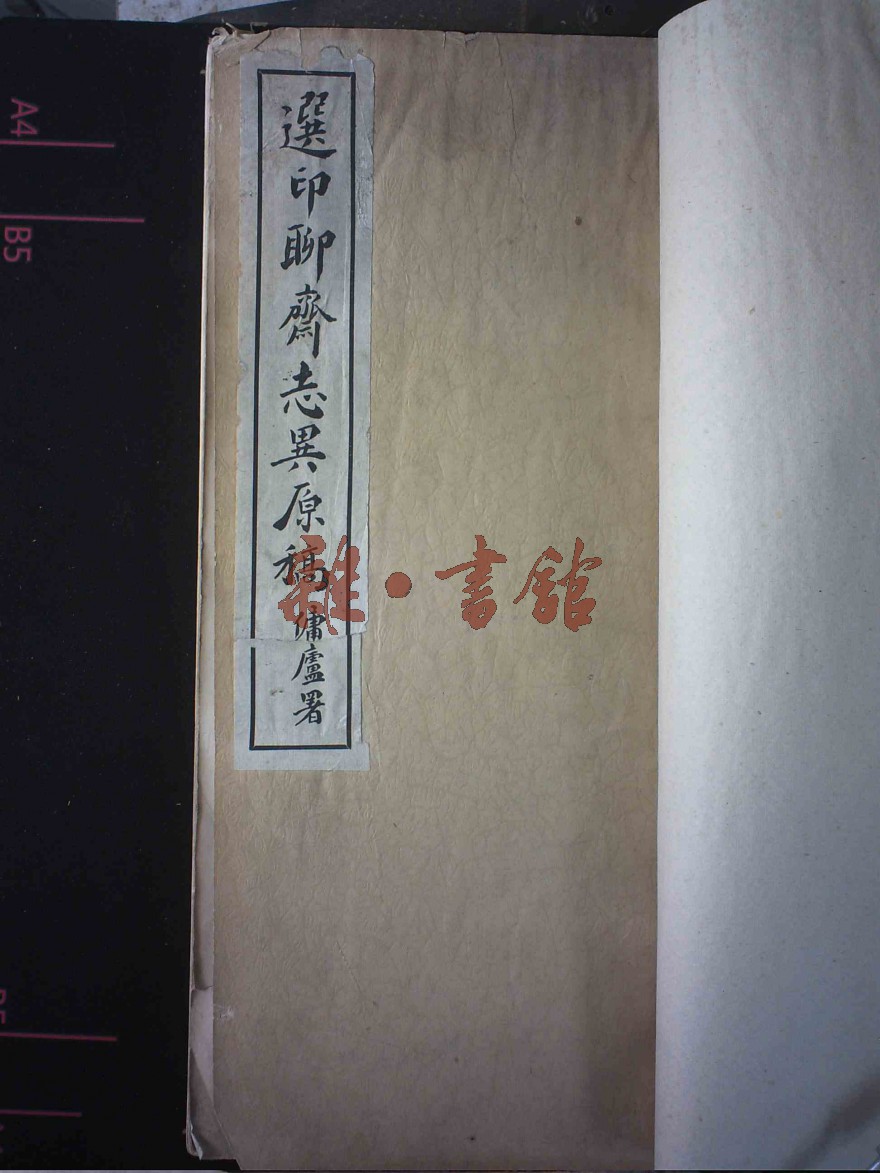 選印聊齋志異原稿
傭廬署
雜·書館
A4
B5